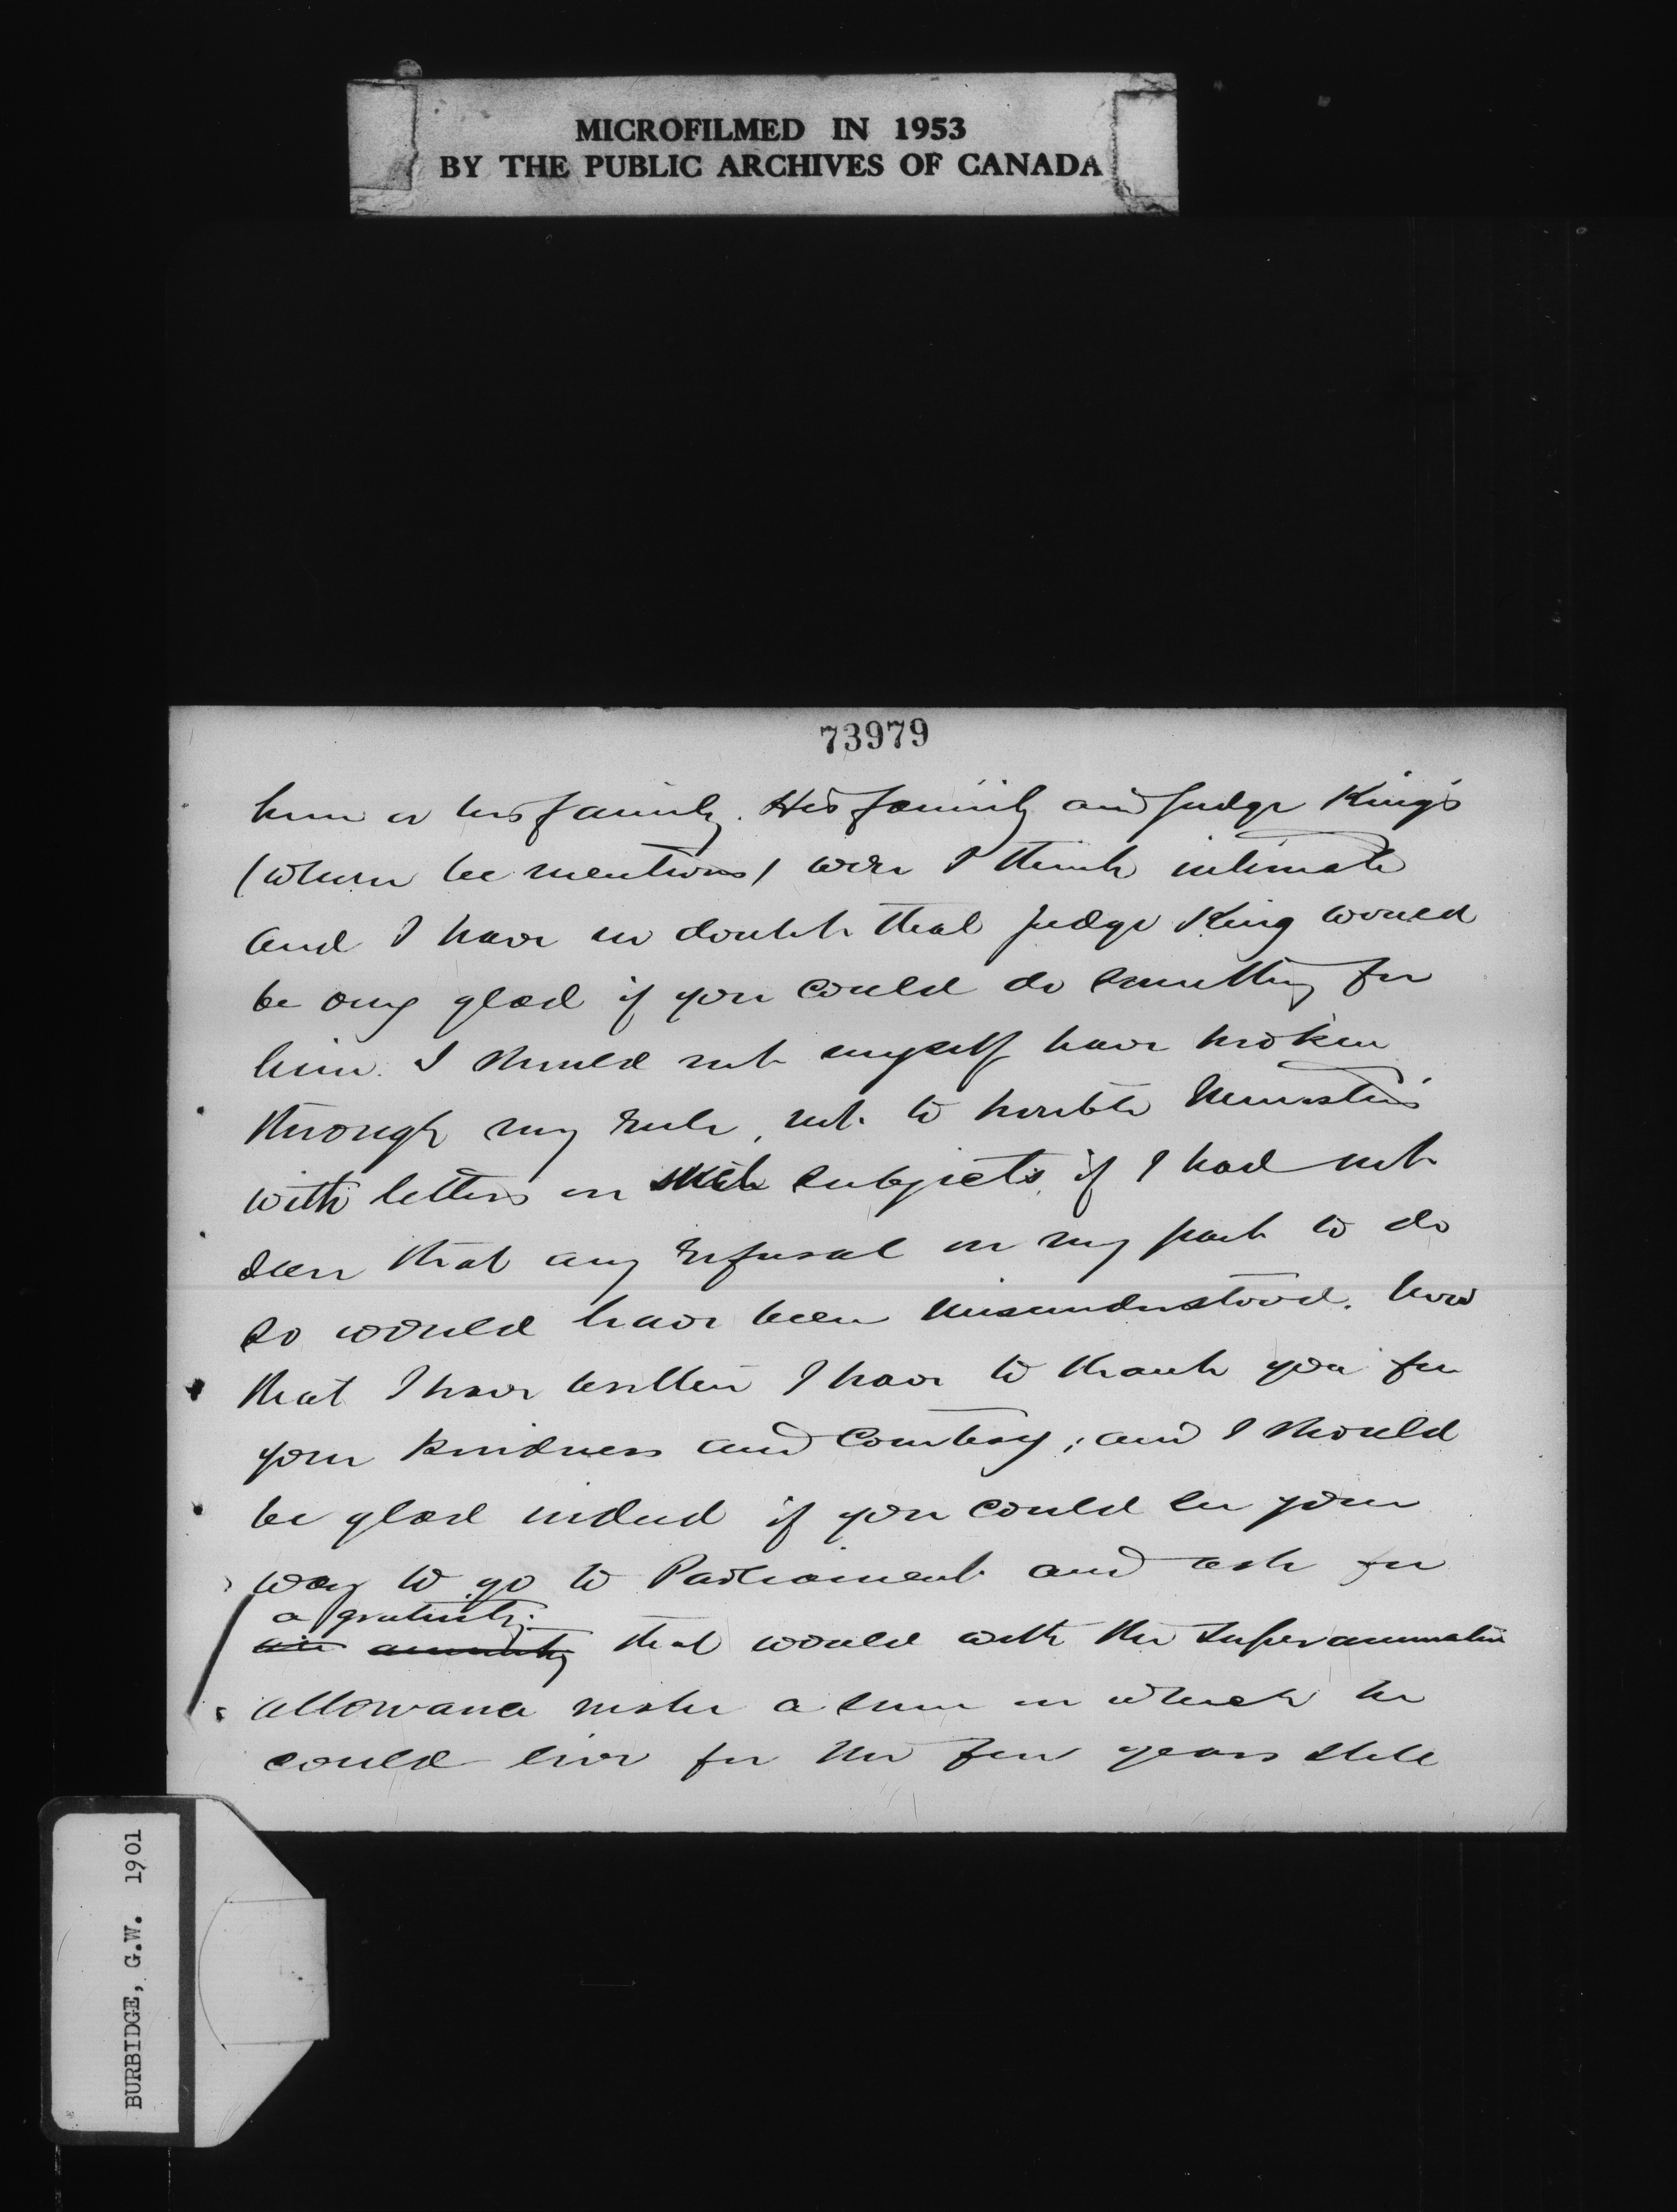 MICROFILMED IN 1953
BY THE PUBLIC ARCHIVES OF CANADA
73979
him or his family. His family and Judge King's
(whom he mentions) were I think intimate
and I have no doubt that Judge King would
be very glad if you could do something for
him. I should not myself have broken
through my rule, not to trouble Ministers
with letters on such subjects, if I had not
seen that any refusal on my part to do
so would have been misunderstood. Now
that I have written I have to thank you for
your kindness and courtesy; and I should
be glad indeed if you could see your
way to go to Parliament and ask for
a gratuity
an annuity that would with the superannuation
allowance make a sum on which he
could live for the few years still
BURBIDGE, G.W. 1901